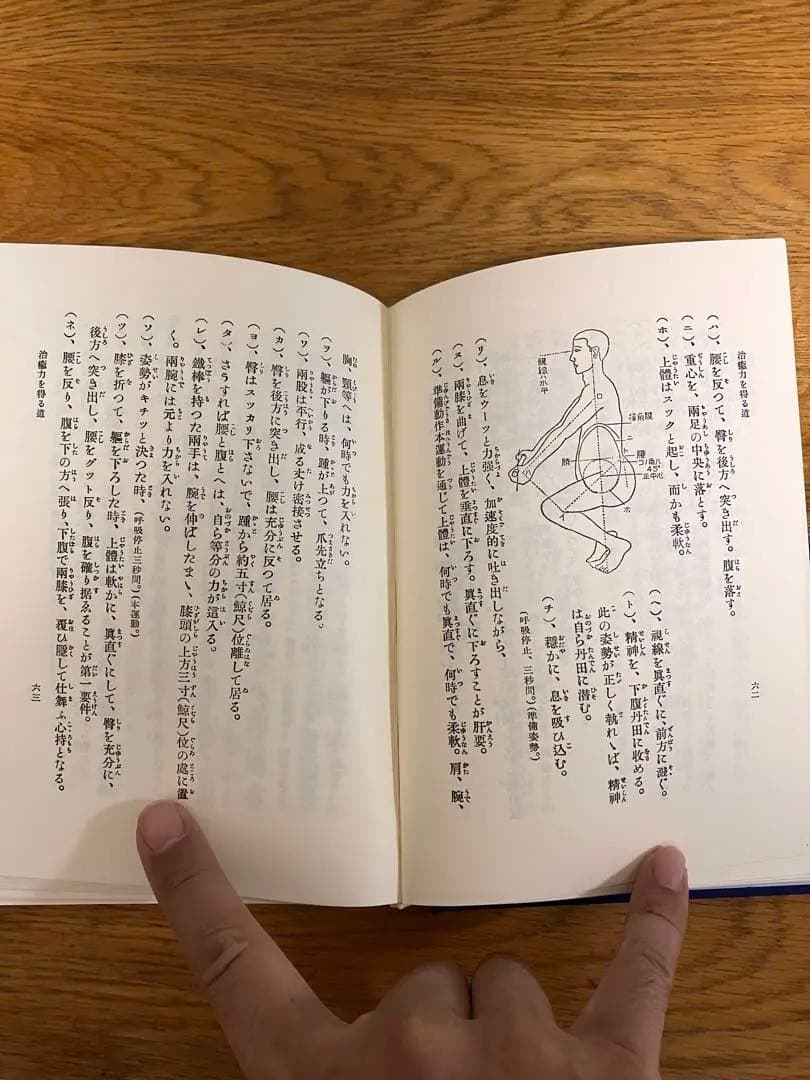 治癒力を得る道
六二
(ハ)、腰を反つて、臀を後方へ突き出す。腹を落す。
(ニ)、重心を、兩足の中央に落とす。
(ホ)、上體はスックと起し、而かも柔軟。
(ヘ)、視線を眞直ぐに、前方に澱ぐ。
(ト)、精神を、下腹丹田に收める。
此の姿勢が正しく執れゝば、精神
は自ら丹田に潜む。
(チ)、穩かに、息を吸ひ込む。
(呼吸停止、三秒間。)(準備姿勢。)
視線ハ水平
腰
臍
中心
(リ)、息をウーッと力强く、加速度的に吐き出しながら、
(ヌ)、兩膝を曲げて、上體を垂直に下ろす。眞直ぐに下ろすことが肝要。
(ル)、準備動作本運動を通じて上體は、何時でも眞直で、何時でも柔軟。肩、腕、
胸、頸等へは、何時でも力を入れない。
(ヲ)、軀が下りる時、踵が上つて、爪先立ちとなる。
(ワ)、兩股は平行、成る丈け密接させる。
(カ)、臀を後方に突き出し、腰は充分に反つて居る。
(ヨ)、臀はスッカリ下さないで、踵から約五寸(鯨尺)位離して居る。
(タ)、さうすれば腰と腹とへは、自ら等分の力が這入る。
(レ)、鐵棒を持つた兩手は、腕を伸ばしたまゝ、膝頭の上方三寸(鯨尺)位の處に置
く。兩腕には元より力を入れない。
(ソ)、姿勢がキチッと決つた時、(呼吸停止三秒間。)(本運動。)
(ツ)、膝を折つて、軀を下ろした時、上體は軟かに、眞直ぐにして、臀を充分に、
後方へ突き出し、腰をグット反り、腹を確り据ゑることが第一要件。
(ネ)、腰を反り、腹を下の方へ張り、下腹で兩膝を、覆ひ隱して仕舞ふ心持となる。
治癒力を得る道
六三